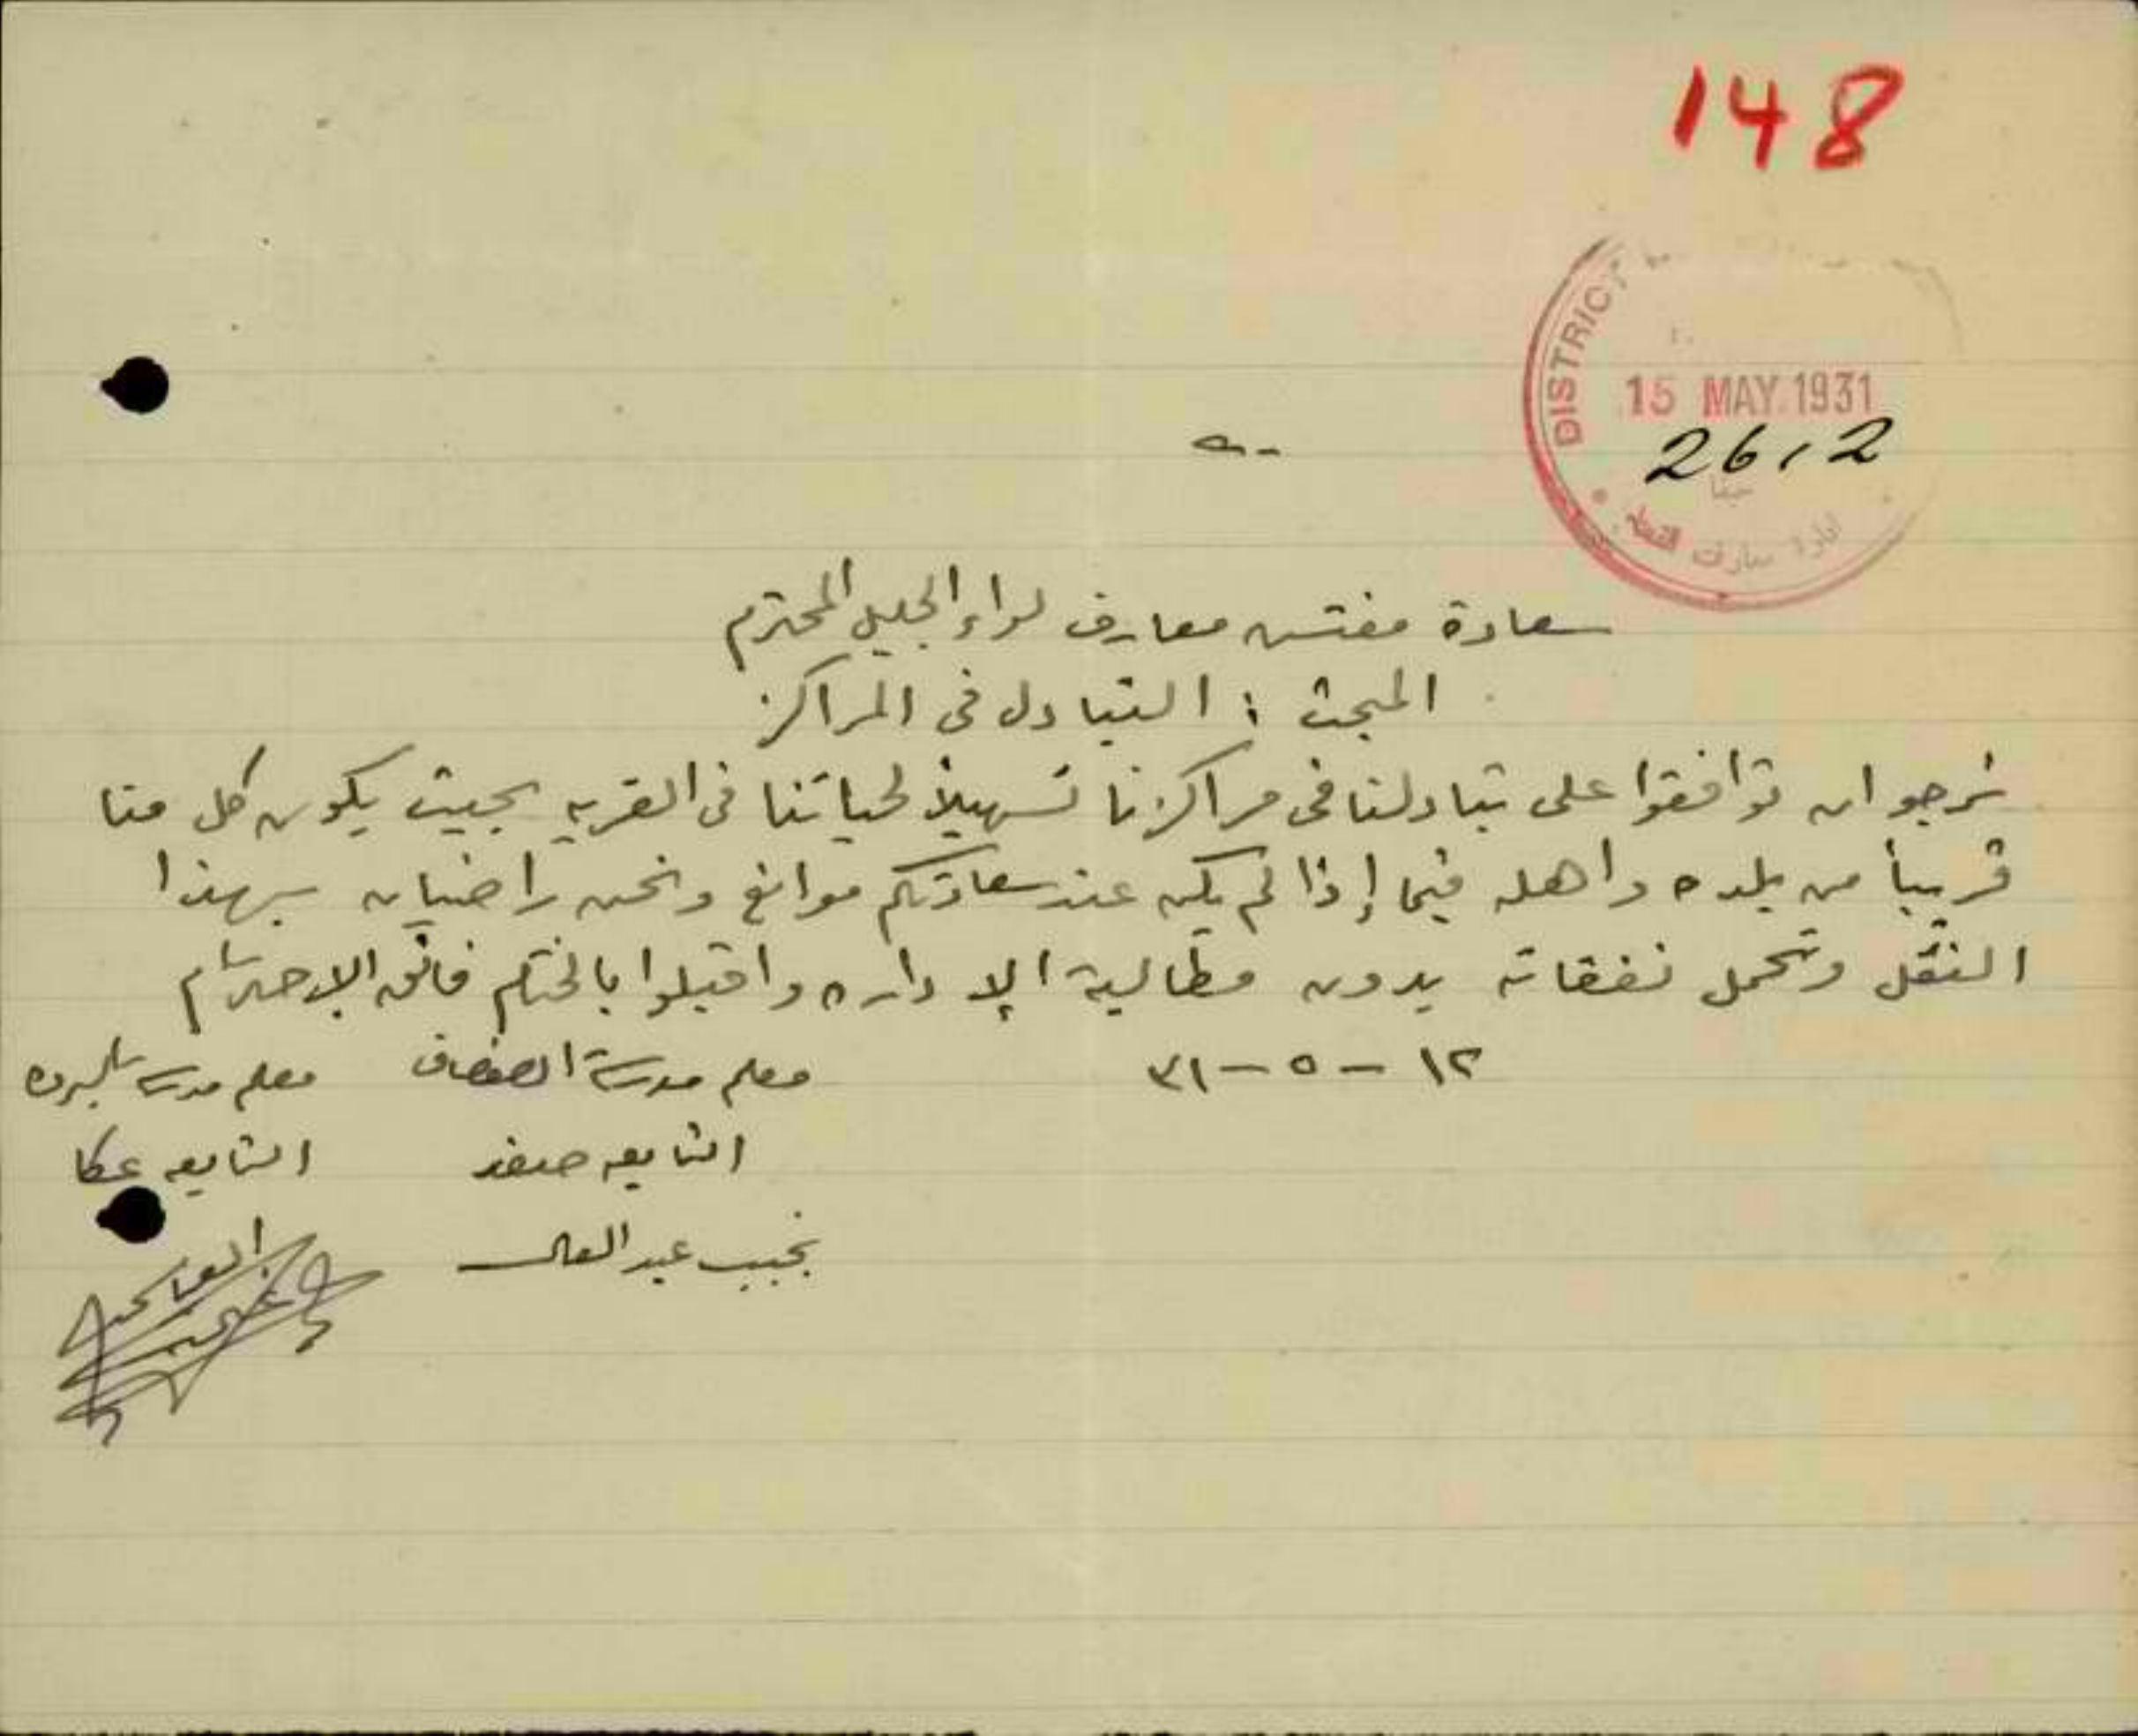 148
DISTRICT
15 MAY 1931
2612
حيفا
سعادة مفتش معارف لواء الجليل المحترم
المبحث : التبادل في المراكز
نرجو ان توافقوا على تبادلنا في مراكزنا تسهيلاً لحياتنا في القريه بحيث يكون كل منا
قريباً من بلده واهله فيما إذا لم يكن عند سعادتكم موانع ونحن راضيان بهذا
النقل ونتحمل نفقاته بدون مطالبة الإداره واقبلوا بالختام فائق الإحترام
١٢ - ٥ - ٣١
معلم مدرسة الصفصاف
معلم مدرسة البروه
التابعه صفد
التابعه عكا
نجيب عبد العال